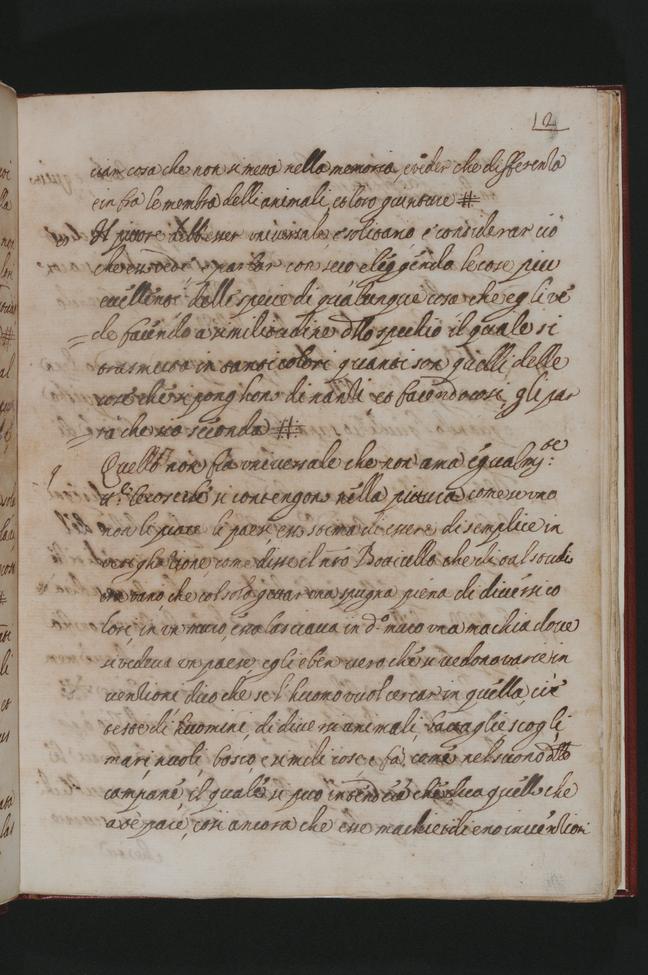 12
ciam cosa che non si metta nella memoria, e vider che differentia
e in fra le membra delli animali, et loro giunture #
Il pittore debbe esser universale e solitario e considerar ciò
che esso vede e parlar con seco eleggendo le cose piu
eccellenti delle specie di qualunque cosa che egli ve
de facendo a similitudine dello specchio il quale si
trasmuta in tanti colori quanti son quelli delle
cose che si ponghono dinanti et facendo cosi, gli par
ra che sia seconda #
Quello non fia universale che non ama egualm.te
tt.e le cose che si contengono nella pittura come se uno
non li piace li paesi esso stima di essere di semplice in
vestighatione, come disse il nro Boticello che di tal studi
era vano, che col solo gettar una spugna piena di diversi co
lori in un muro, essa lasciava in d.o muro una machia dove
si vedeva un paese, egli e ben vero che si vedono varie in
ventioni di cio che l'huomo vuol cercar in quella, cio è
teste di huomini, di diversi animali, battaglie, scogli,
mari, nuoli, boschi, e simili cose e fa come nel suono delle
campane, il quale si puo intendere che dica quello che
a te pare, cosi ancora che esse machie ti dieno inventioni